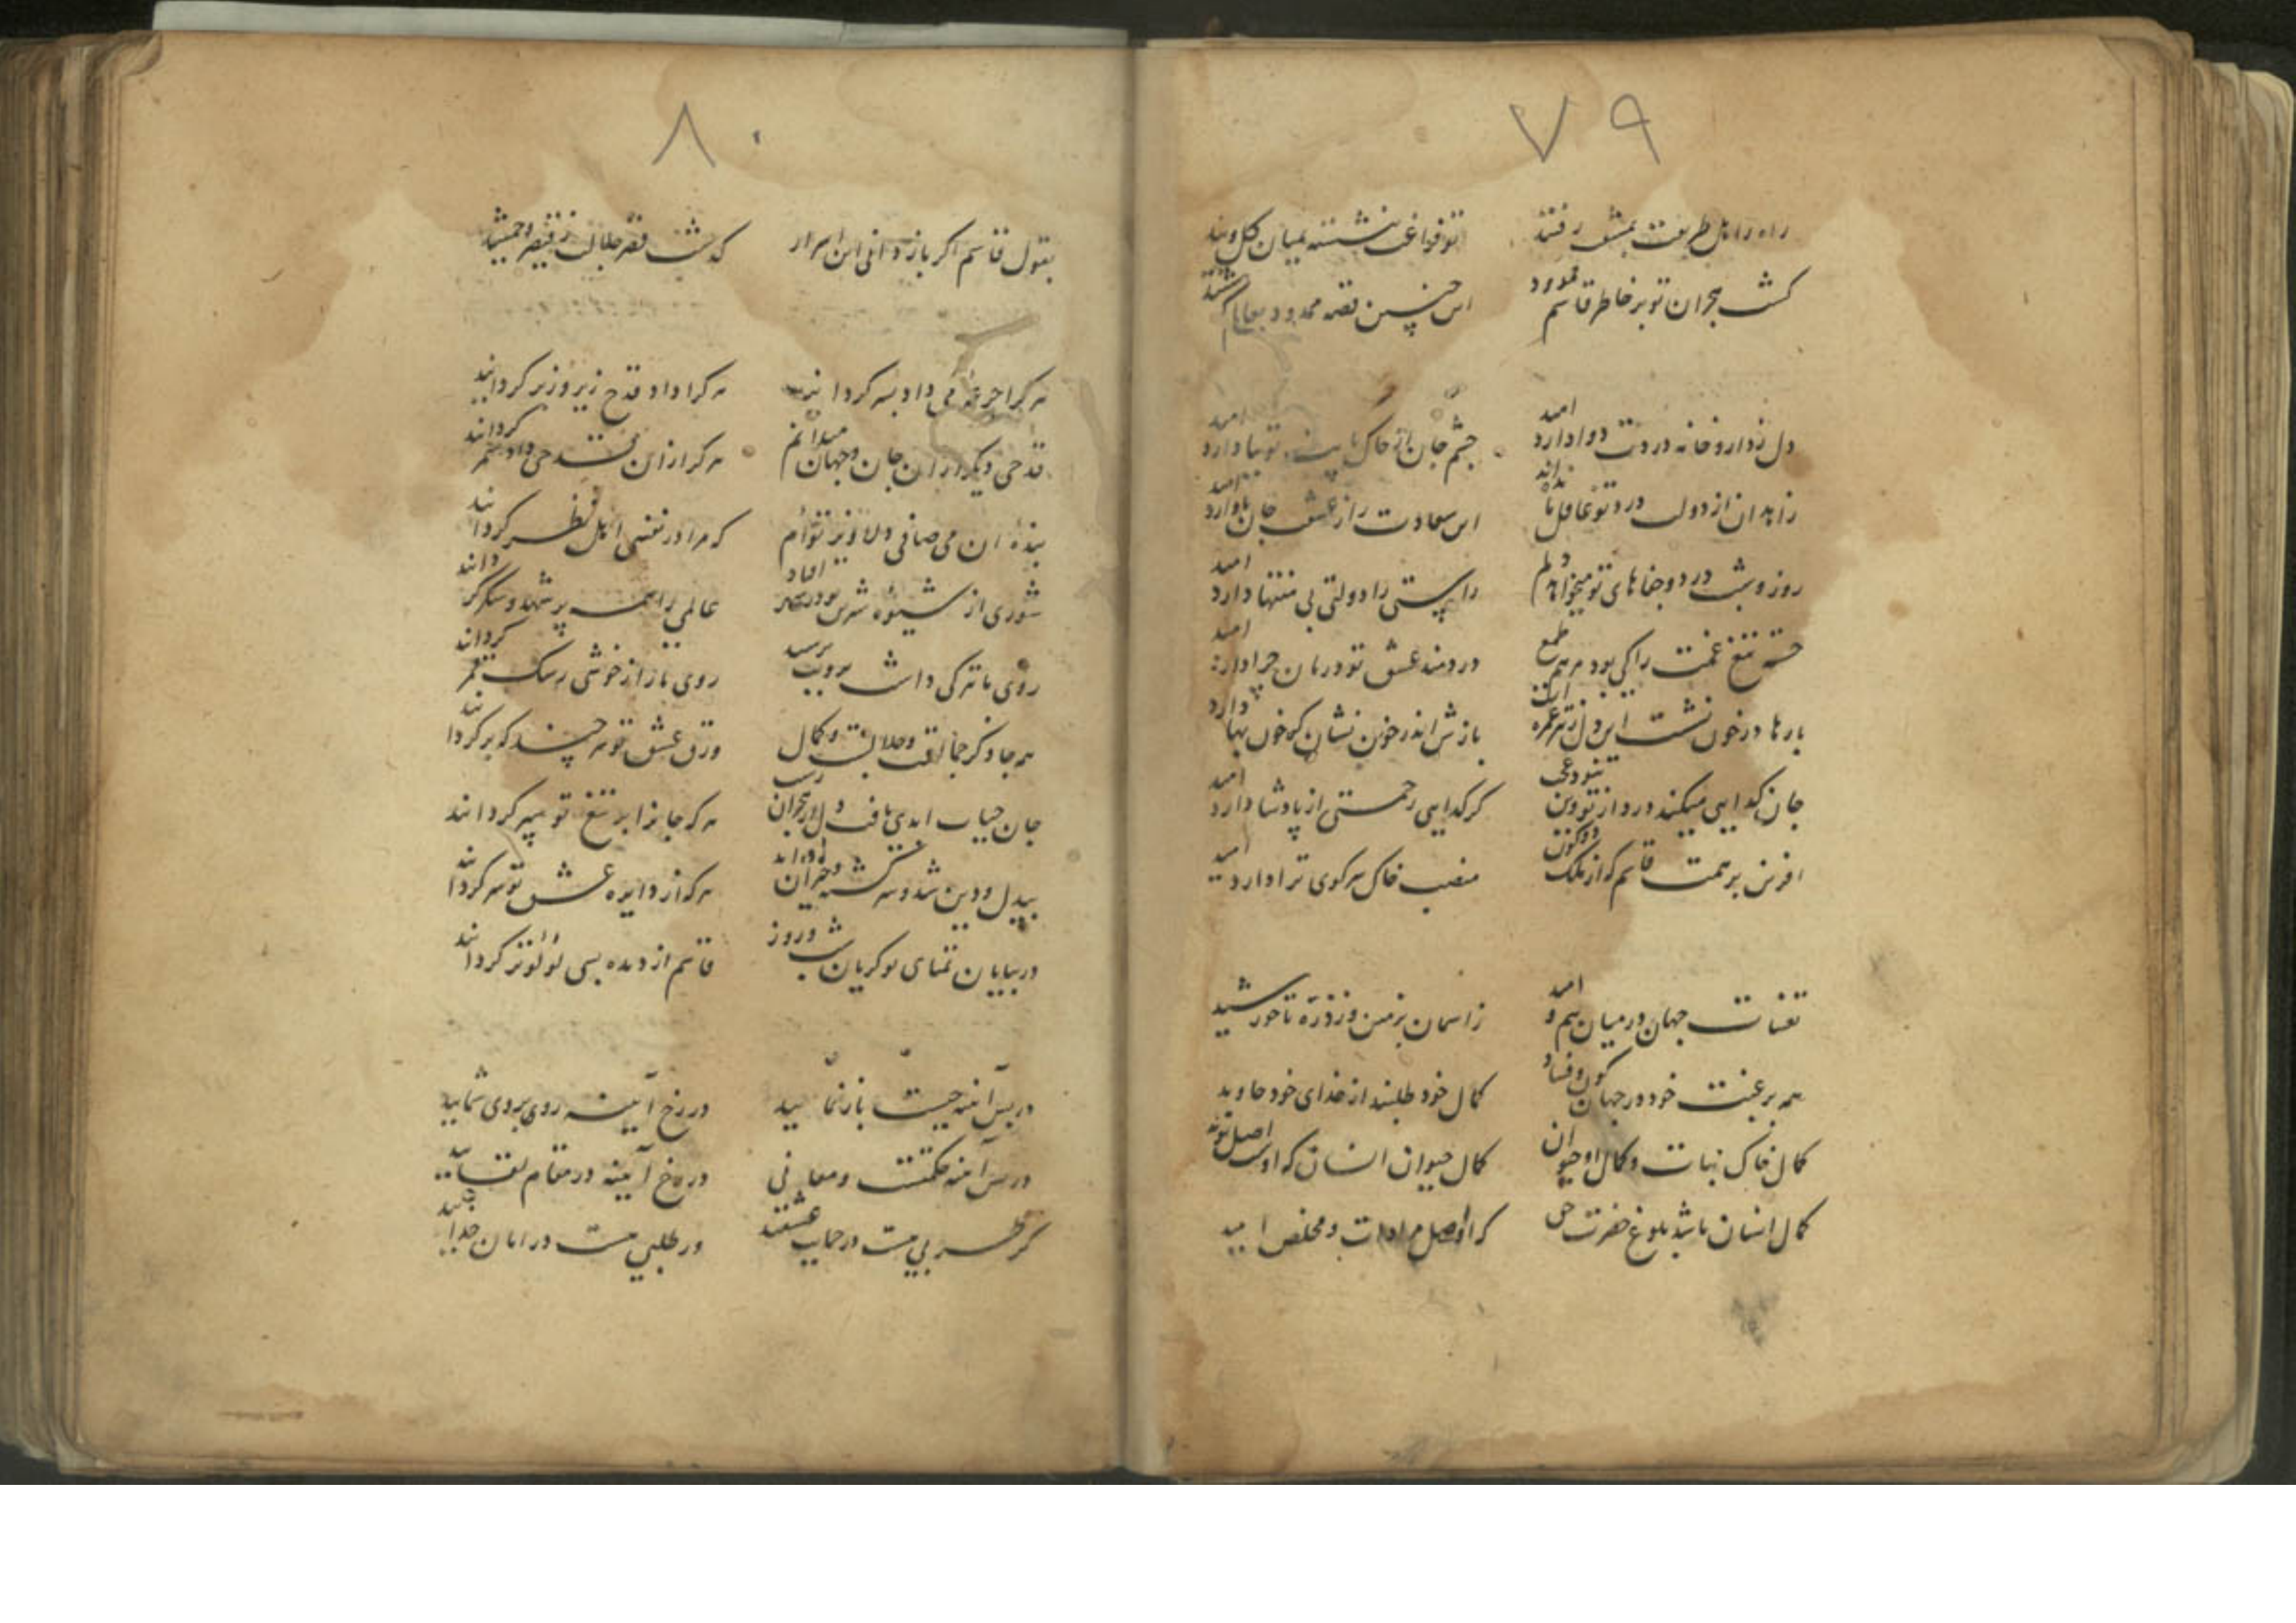 ۷۹
راه را اهل طریقت بمشق رفتند تو فراغت بنشسته بمیان کل وبند
کشت هجران تو بر خاطر قاسم ممدود این چنین قصه ممدود بعایام کشند
دل ز دارو خانه دردت دوا دارد امید چشم جان از خاک پایت توتیا دارد امید
زاهدان از دولت درد تو غافل مانده‌اند این سعادت را ز عشقت جان ما دارد امید
روز و شب درد و جفاهای تو میخواهد دلم راستی را دولتی بی منتها دارد امید
خسته تیغ غمت را کی بود مرهم طمع دردمند عشق تو درمان چرا دارد امید
بارها در خون نشست این دل ز تیر غمزه‌ات بازش اندر خون نشان کو خون بها دارد امید
جان کدایی میکند درد از تو وین نبود عجب کر کدایی رحمتی از پادشا دارد امید
افرین بر همت قاسم که از ملک دو کون منصب خاک سر کوی ترا دارد امید
تعینات جهان در میان بیم و امید ز اسمان بزمین و ز ذره تا خورشید
همه برغبت خود در جهان کون و فساد کمال خود طلبند از خدای خود جاوید
کمال خاک نبات و کمال او حیوان کمال حیوان انسان که اوست اصل نوید
کمال انسان باشد بلوغ حضرت حق که اوست اصل مرادات و مخلص امید
۸۰
بقول قاسم اکر بازدانی این اسرار کذشت قصر جلالت ز قیصر و جمشید
هر کرا جرعه می داد بسر کردانید هر کرا داد قدح زیر و زبر کردانید
قدحی دیکر از ان جان و جهان میدانم هر کرا زان قدحی داد سمر کردانید
بنده ان می صافی دلاویز توام که مرا در نفسی اهل نظر کردانید
شوری از شیوه شیرین تو در مصر افتاد عالمی را همه پر شهد و شکر کردانید
روی ما ترکی داشت برویت برسید روی ما را از خوشی رشک قمر کردانید
هر جا ذکر جمالت و جلالت و کمال ورق عشق تو هر چند که بر کردانید
جان حیات ابدی یافت دل از هجران رست هر که جانرا بر تیغ تو سپر کردانید
بیدل و دین شد و سرکشته و حیران هر که از دایره عشق تو سر کردانید
در بیابان تمنای تو کریان شب و روز قاسم از دیده بسی لؤلؤ تر کردانید
در پس آینه چیست باز نمایید در رخ آیینه روی بروی شمایید
در پس آینه حکمتست و معانی در رخ آیینه در مقام لقایید
کر طربی هست در حمایت عشقند ور طلبی هست در امان خدایید